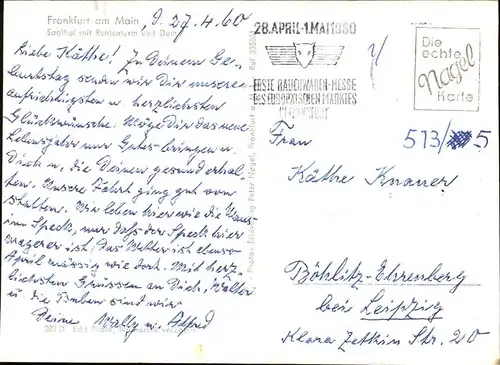 Frankfurt am Main
Saalhof mit Rententurm und Dom
d. 27.4.60
Liebe Käthe! Zu Deinem Ge-
burtstag senden wir Dir unsere
aufrichtigsten u. herzlichsten
Glückwünsche. Möge Dir das neue
Lebensjahr nur Gutes bringen u.
Dich u. die Deinen gesund erhal-
ten. Unsere Fahrt ging gut von
statten. Wir leben hier wie die Maus
im Speck, nur daß der Speck hier
magerer ist. Das Wetter ist ebenso
April mässig wie dort. Mit herz-
lichsten Grüssen an Dich, Walter
u. die Buben sind wir
Deine Wally u. Alfred
28. APRIL - 1. MAI 1960
ERSTE RAUCHWAREN-MESSE
DES EUROPÄISCHEN MARKTES
IN FRANKFURT
Die
echte
Nagel
Karte
513/ 5
Frau
Käthe Knauer
Böhlitz-Ehrenberg
bei Leipzig
Klara Zetkin Str. 20